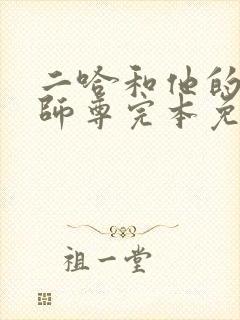 二哈和他的
师尊完本免
祖一堂